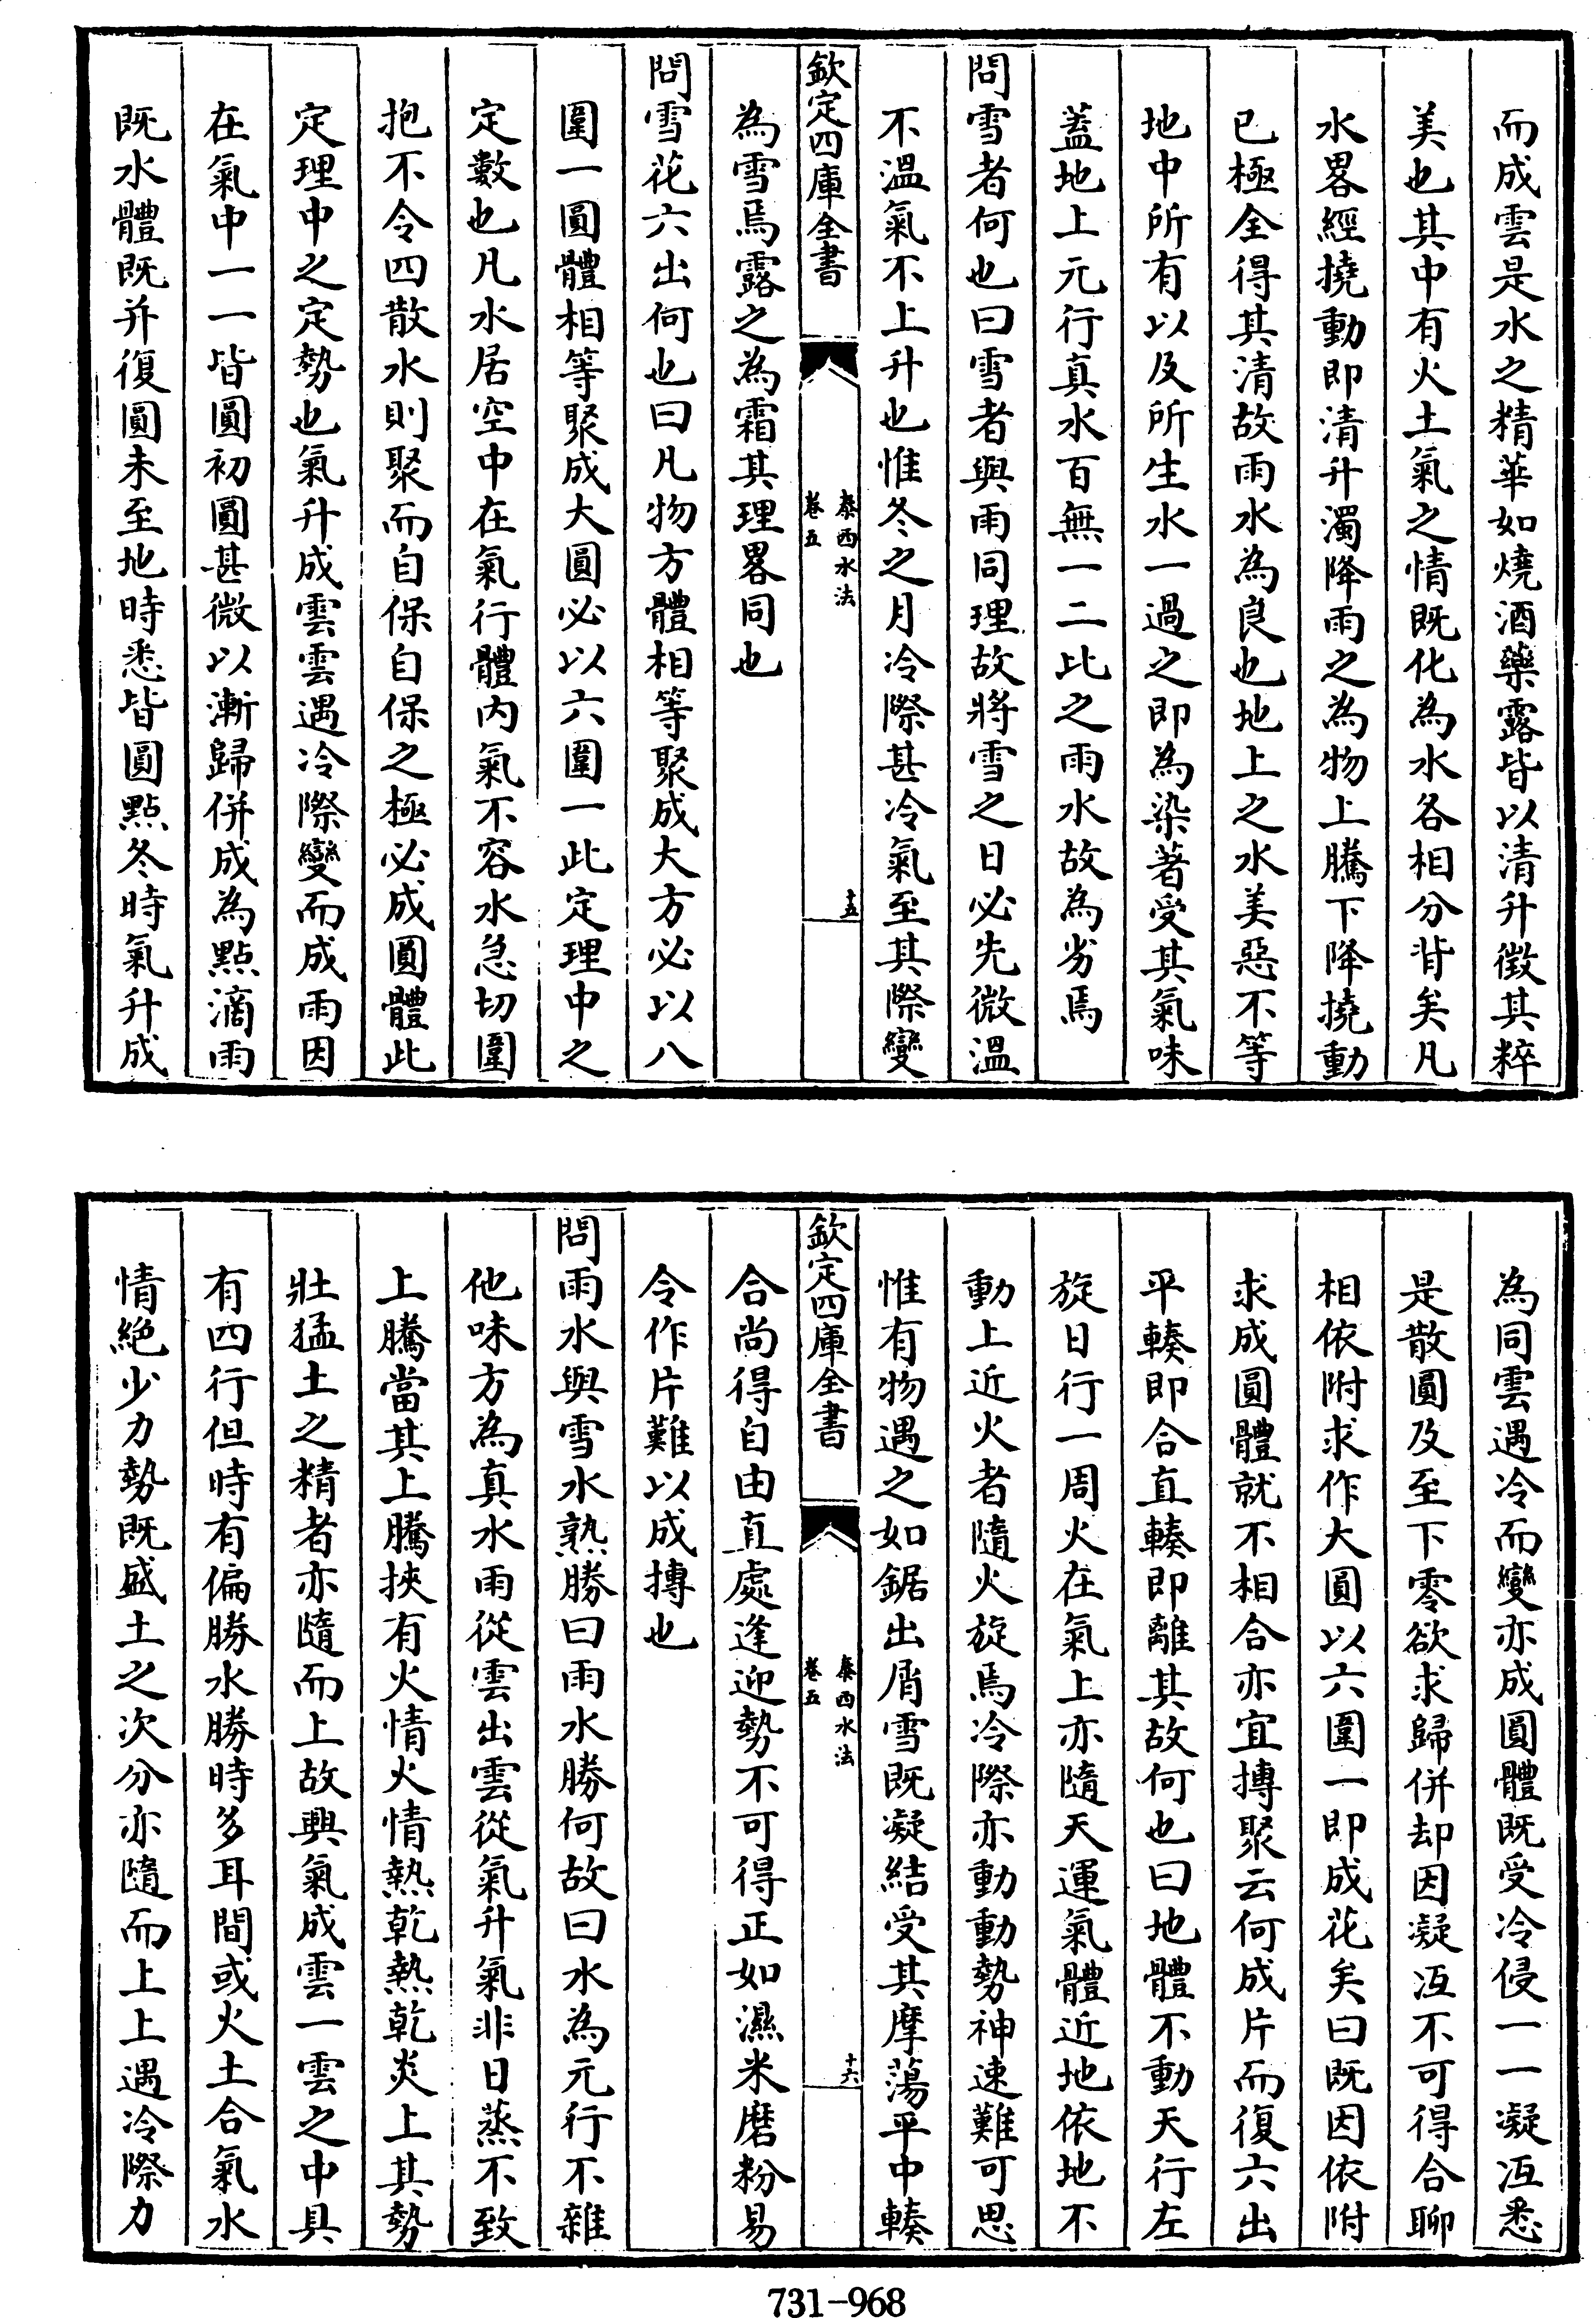 而成雲是水之精華如燒酒藥露皆以清升徵其粹
美也其中有火土氣之情既化為水各相分背矣凡
水畧經撓動即清升濁降雨之為物上騰下降撓動
已極全得其清故雨水為良也地上之水美惡不等
地中所有以及所生水一過之即為染著受其氣味
蓋地上元行真水百無一二比之雨水故為劣焉
問雪者何也曰雪者與雨同理故將雪之日必先微溫
不溫氣不上升也惟冬之月冷際甚冷氣至其際變
欽定四庫全書
泰西水法
卷五
十五
為雪焉露之為霜其理畧同也
問雪花六出何也曰凡物方體相等聚成大方必以八
圍一圓體相等聚成大圓必以六圍一此定理中之
定數也凡水居空中在氣行體內氣不容水急切圍
抱不令四散水則聚而自保自保之極必成圓體此
定理中之定勢也氣升成雲雲遇冷際變而成雨因
在氣中一一皆圓初圓甚微以漸歸併成為點滴雨
既水體既并復圓未至地時悉皆圓點冬時氣升成
為同雲遇冷而變亦成圓體既受冷侵一一凝冱悉
是散圓及至下零欲求歸併却因凝冱不可得合聊
相依附求作大圓以六圍一即成花矣曰既因依附
求成圓體就不相合亦宜摶聚云何成片而復六出
平輳即合直輳即離其故何也曰地體不動天行左
旋日行一周火在氣上亦隨天運氣體近地依地不
動上近火者隨火旋焉冷際亦動動勢神速難可思
惟有物遇之如鋸出屑雪既凝結受其摩蕩平中輳
欽定四庫全書
泰西水法
卷五
十六
合尚得自由直處逢迎勢不可得正如濕米磨粉易
令作片難以成摶也
問雨水與雪水熟勝曰雨水勝何故曰水為元行不雜
他味方為真水雨從雲出雲從氣升氣非日蒸不致
上騰當其上騰挾有火情火情熱乾熱乾炎上其勢
壯猛土之精者亦隨而上故興氣成雲一雲之中具
有四行但時有偏勝水勝時多耳間或火土合氣水
情絕少力勢既盛土之次分亦隨而上上遇冷際力
731-968